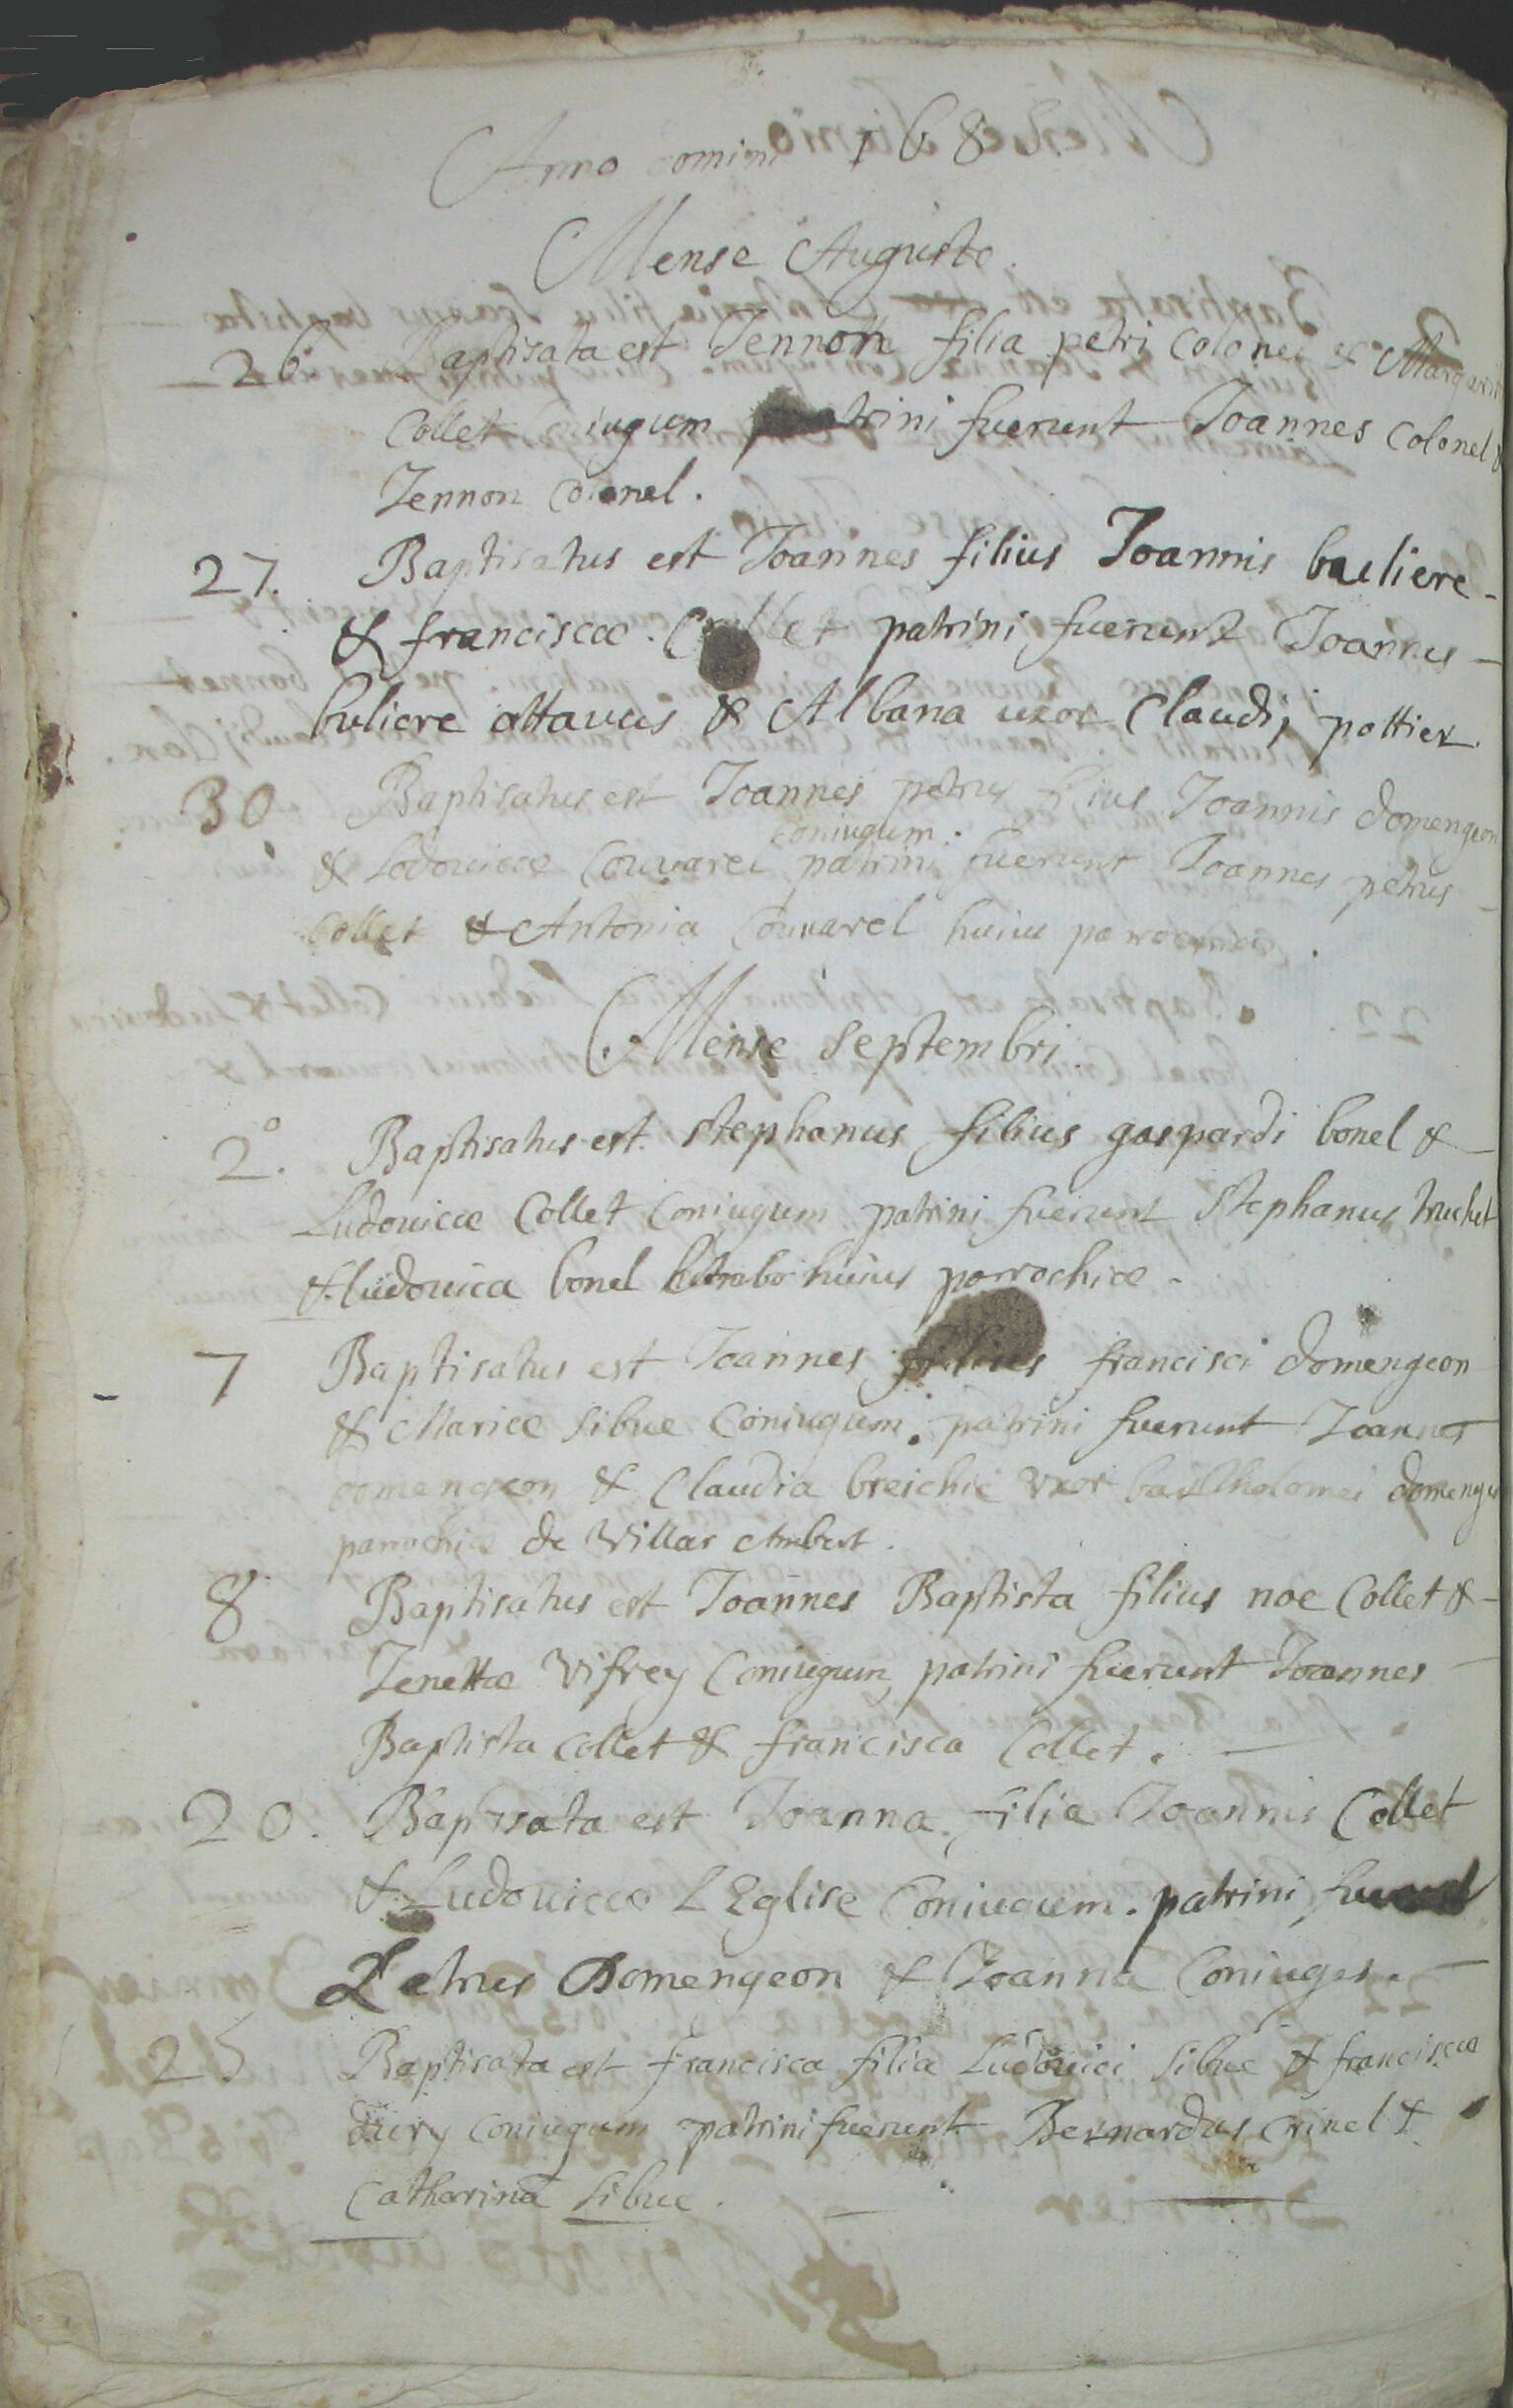 Anno domini 168
Mense Augusto.
26 Baptisata est Jennon filia petri colonel & Margarit
Collet Coniugum patrini fuerunt Joannes colonel &
Jennon colonel.
27. Baptisatus est Joannes filius Joannis buliere
& franciscæ Collet patrini fuerunt Joannes
buliere attavus & Albana uxor Claudij pottier
30 Baptisatus est Joannes petrus filius Joannis domengeon
coniugum.
& Lodovicæ Couvarel patrini fuerunt Joannes petrus
Collet & Antonia Couvarel huius parrochiæ.
Mense Septembri
2º. Baptisatus est stephanus filius gaspardi bonel &
Ludovicæ Collet Coniugum patrini fuerunt stephanus truchet
& ludovica bonel huius parrochiæ.
7 Baptisatus est Joannes filius francisci domengeon
& Mariæ Sibue Coniugum. patrini fuerunt Joannes
domengeon & Claudia breichie uxor bartholomei domenge
parrochiæ de Villar Ambert.
8 Baptisatus est Joannes Baptista filius noe Collet &
Jenettæ Vifrey Coniugum patrini fuerunt Joannes
Baptista Collet & francisca Collet.
20. Baptisata est Joanna filia Joannis Collet
& Ludovicæ L Eglise Coniugum. patrini fuerunt
Petrus Domengeon & Joanna Coniuges.
25 Baptisata est francisca filia Ludovici Sibue & franciscæ
coniugum patrini fuerunt Bernardus Crinel &
Catharina Sibue.